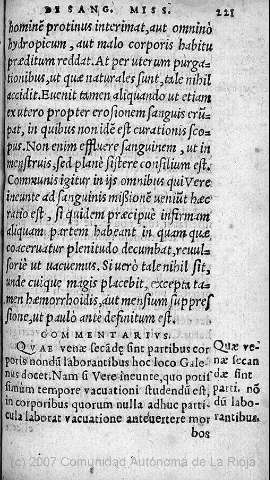 DE SANG. MISS. 221
hominē protinus interimat, aut omninò
hydropicum, aut malo corporis habitu
præditum reddat. At per uterum purga-
tionibus, ut quæ naturales sunt, tale nihil
accidit. Euenit tamen aliquando ut etiam
ex utero propter erosionem sanguis erū-
pat, in quibus non idē est curationis sco-
pus. Non enim effluere sanguinem, ut in
menstruis, sed planè sistere consilium est.
Communis igitur in ijs omnibus qui Vere
ineunte ad sanguinis missionē veniūt hæc
ratio est, si quidem præcipuè infirmam
aliquam partem habeant in quam quæ
coaceruatur plenitudo decumbat, reuul-
soriè ut vacuemus. Si verò tale nihil sit,
unde cuique magis placebit, excepta ta-
men hæmorrhoidis, aut mensium suppres
sione, ut paulò antè definitum est.
COMMENTARIVS.
QVAE venæ secādę sint partibus cor
poris nondū laborantibus hoc loco Gale-
nus docet. Nam si Vere ineunte, quo potis
simùm tempore vacuationi studendū est,
in corporibus quorum nulla adhuc parti-
cula laborat vacuatione anteuertere mor
bos
Quæ ve-
næ secan
dæ sint
parti. nō
dū labo-
rantibus.
(c) 2007 Comunidad Autónoma de La Rioja